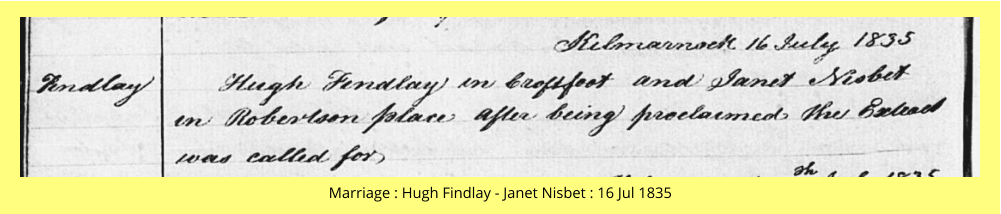 Kilmarnock 16 July 1835
Findlay
Hugh Findlay in Croftfoot and Janet Nisbet
in Robertson place After being proclaimed the Extract
was called for
Marriage : Hugh Findlay - Janet Nisbet : 16 Jul 1835